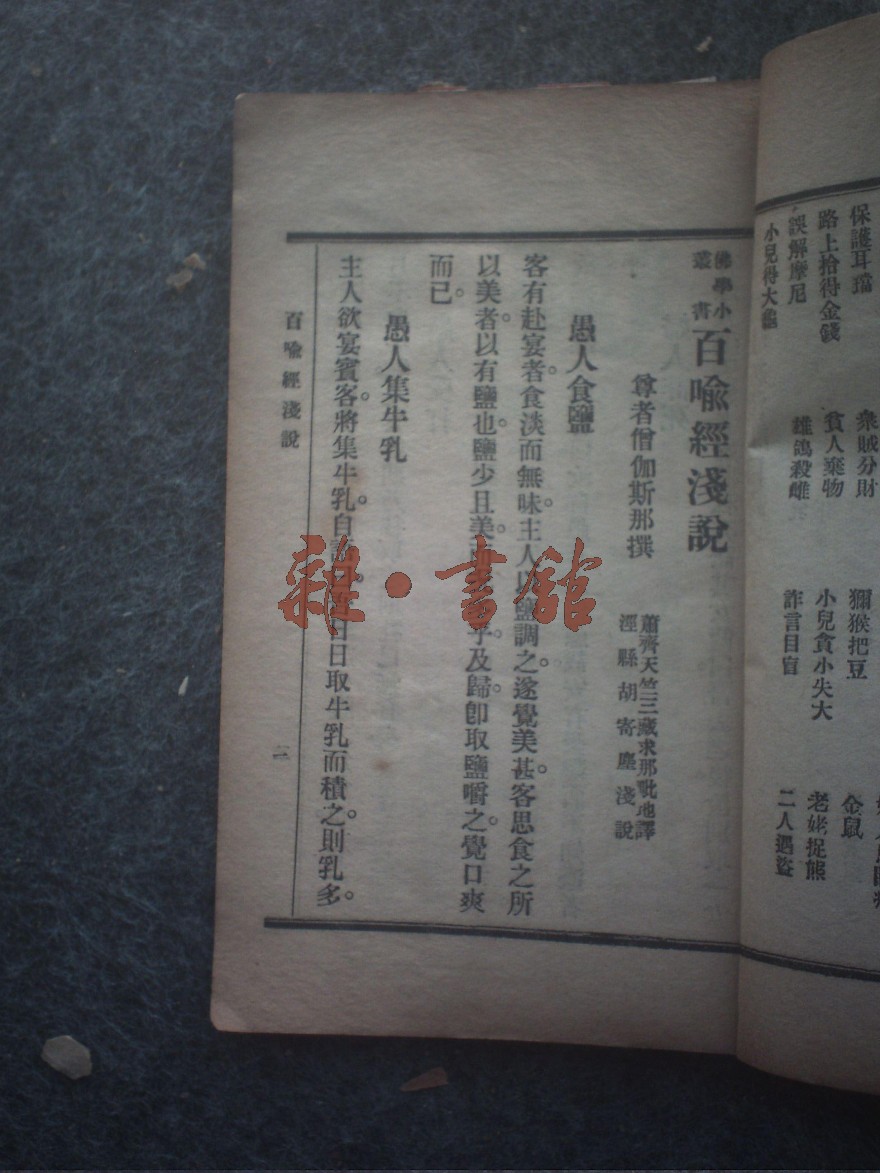 保護耳璫
衆賊分財
獼猴把豆
路上拾得金錢
貧人棄物
小兒貪小失大
金鼠
誤解摩尼
雄鴿殺雌
詐言目盲
老姥捉熊
小兒得大龜
二人遇盜
佛學小
叢書
百喩經淺說
尊者僧伽斯那撰
蕭齊天竺三藏求那毗地譯
涇縣胡寄塵淺說
愚人食鹽
客有赴宴者。食淡而無味。主人以鹽調之。遂覺美甚。客思食之所
以美者。以有鹽也。鹽少且美。乎。及歸。卽取鹽嚼之。覺口爽
而已。
愚人集牛乳
主人欲宴賓客。將集牛乳。自日日取牛乳而積之。則乳多。
百喩經淺說
二
雜·書館